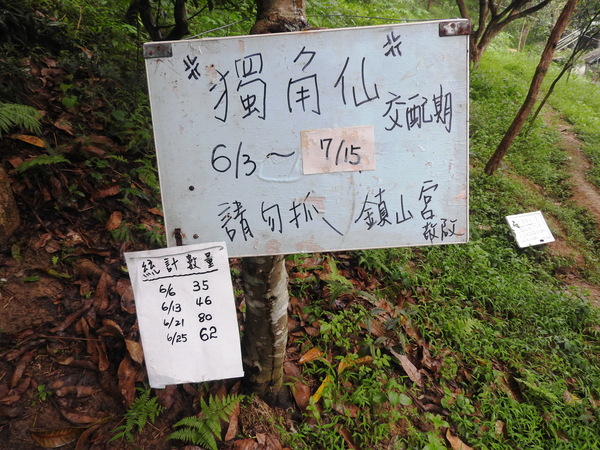 獨角仙 交配期
6/3~ 7/15
請勿抓 鎮山宮 敬啟
統計數量
6/6 35
6/13 46
6/21 80
6/25 62